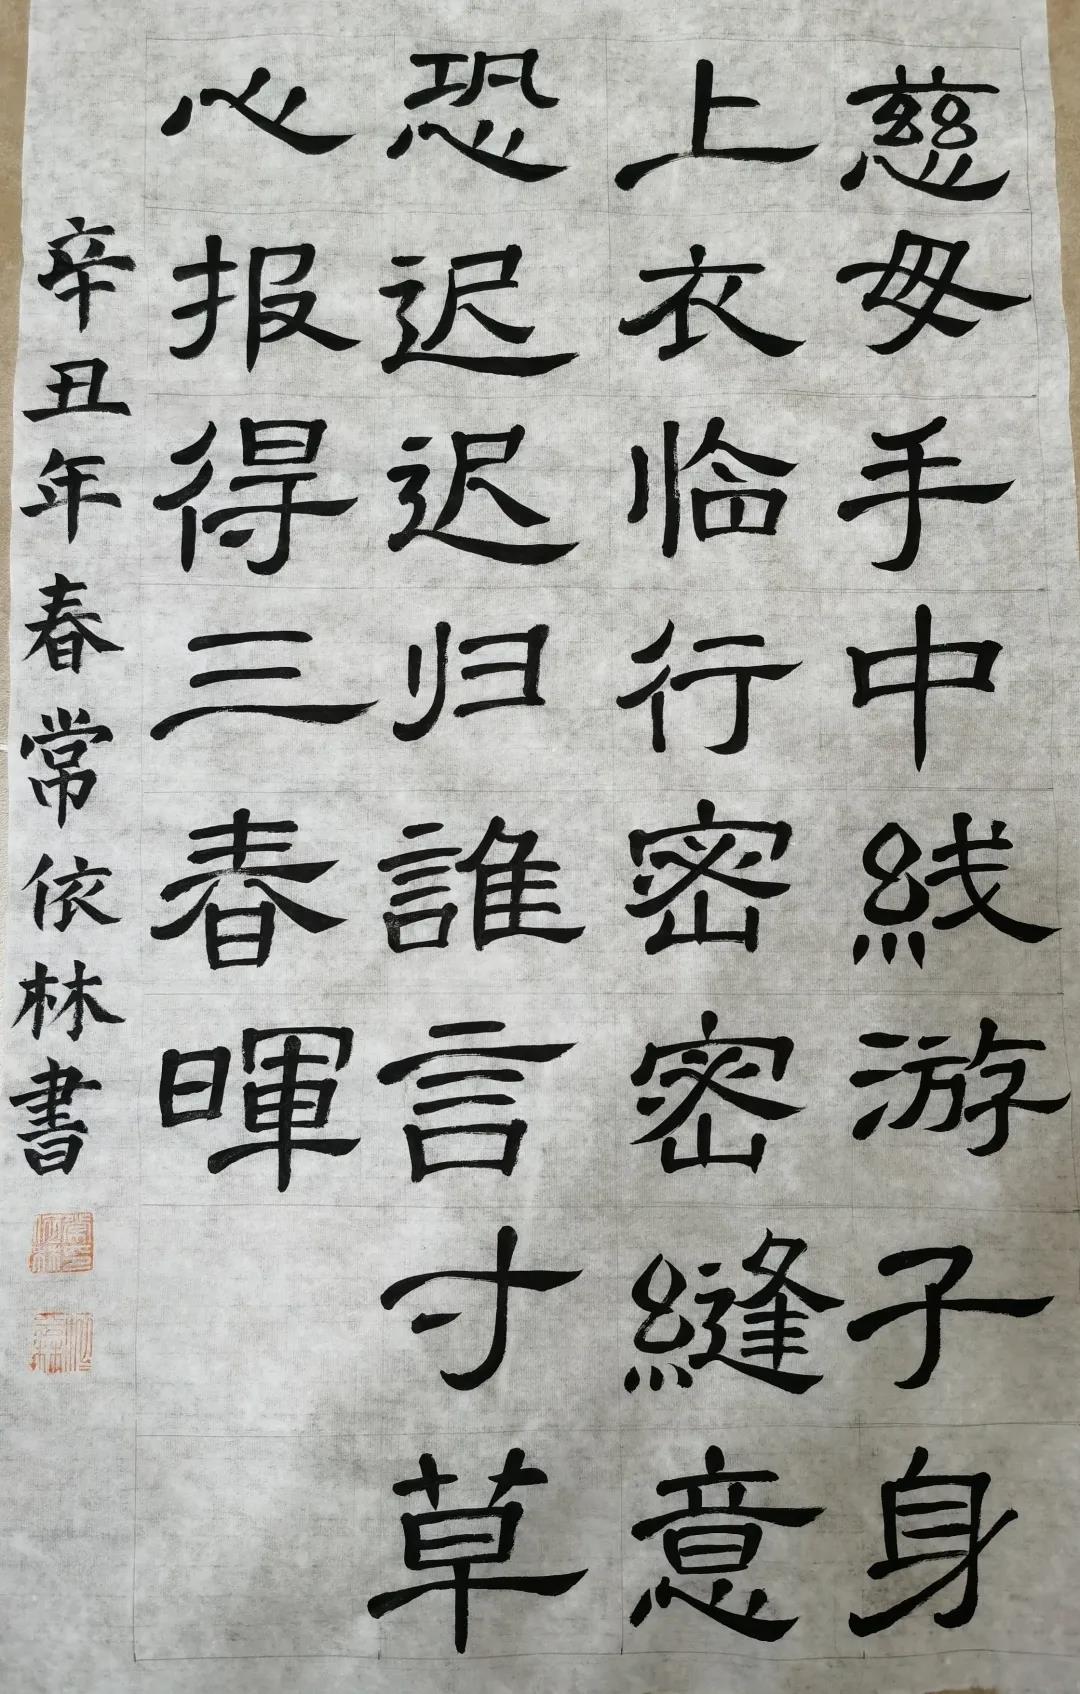 慈母手中线游子身
上衣临行密密縫意
恐迟迟归誰言寸草
心报得三春暉
辛丑年春常依林書